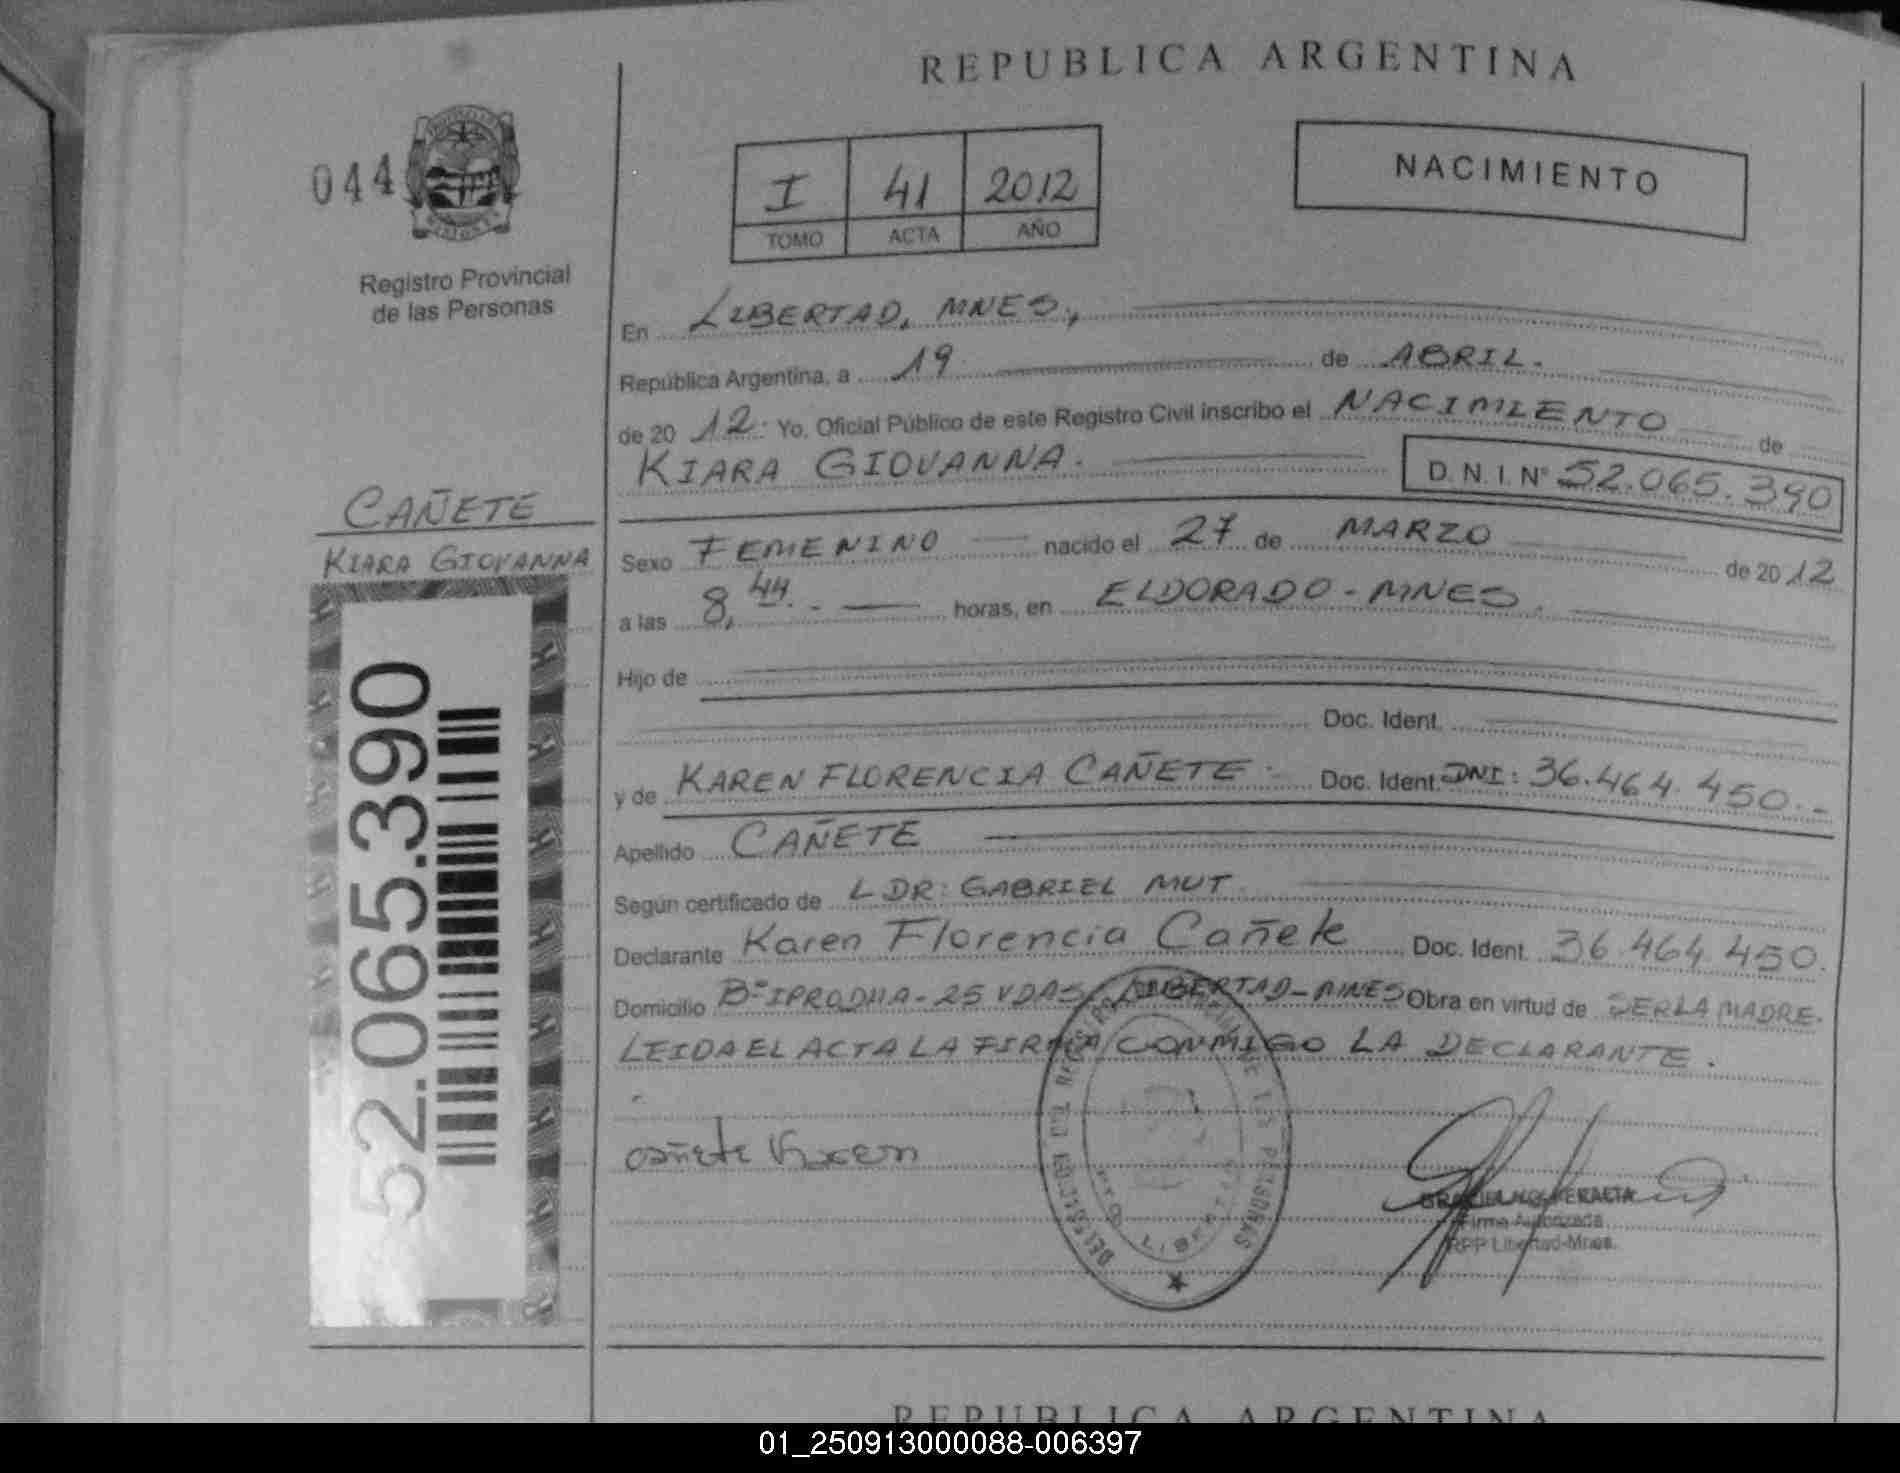 REPUBLICA ARGENTINA
044
Registro Provincial
de las Personas
I 41 2012
TOMO ACTA AÑO
NACIMIENTO
En LIBERTAD, MNES,
República Argentina, a 19 de ABRIL.
de 20 12. Yo, Oficial Público de este Registro Civil inscribo el NACIMIENTO de
KIARA GIOVANNA. D.N.I. Nº 52.065.390
CAÑETE
KIARA GIOVANNA
52.065.390
Sexo FEMENINO nacido el 27 de MARZO de 20 12
a las 8,44.- horas, en ELDORADO - MNES.
Hijo de
Doc. Ident.
y de KAREN FLORENCIA CAÑETE. Doc. Ident. DNI: 36.464.450.-
Apellido CAÑETE
Según certificado de L DR: GABRIEL MUT
Declarante Karen Florencia Cañete Doc. Ident. 36.464.450.
Domicilio Bº IPRODHA - 25 VDAS LIBERTAD - MNES Obra en virtud de SER LA MADRE.
LEIDA EL ACTA LA FIRMA CONMIGO LA DECLARANTE.
cañete Karen
LIBERTAD
GRACIELA G. PERALTA
Firma Autorizada
RPP Libertad-Mnes.
REPUBLICA ARGENTINA
01_250913000088-006397